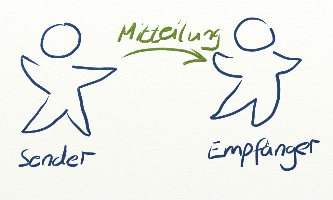 Mitteilung
Sender
Empfänger